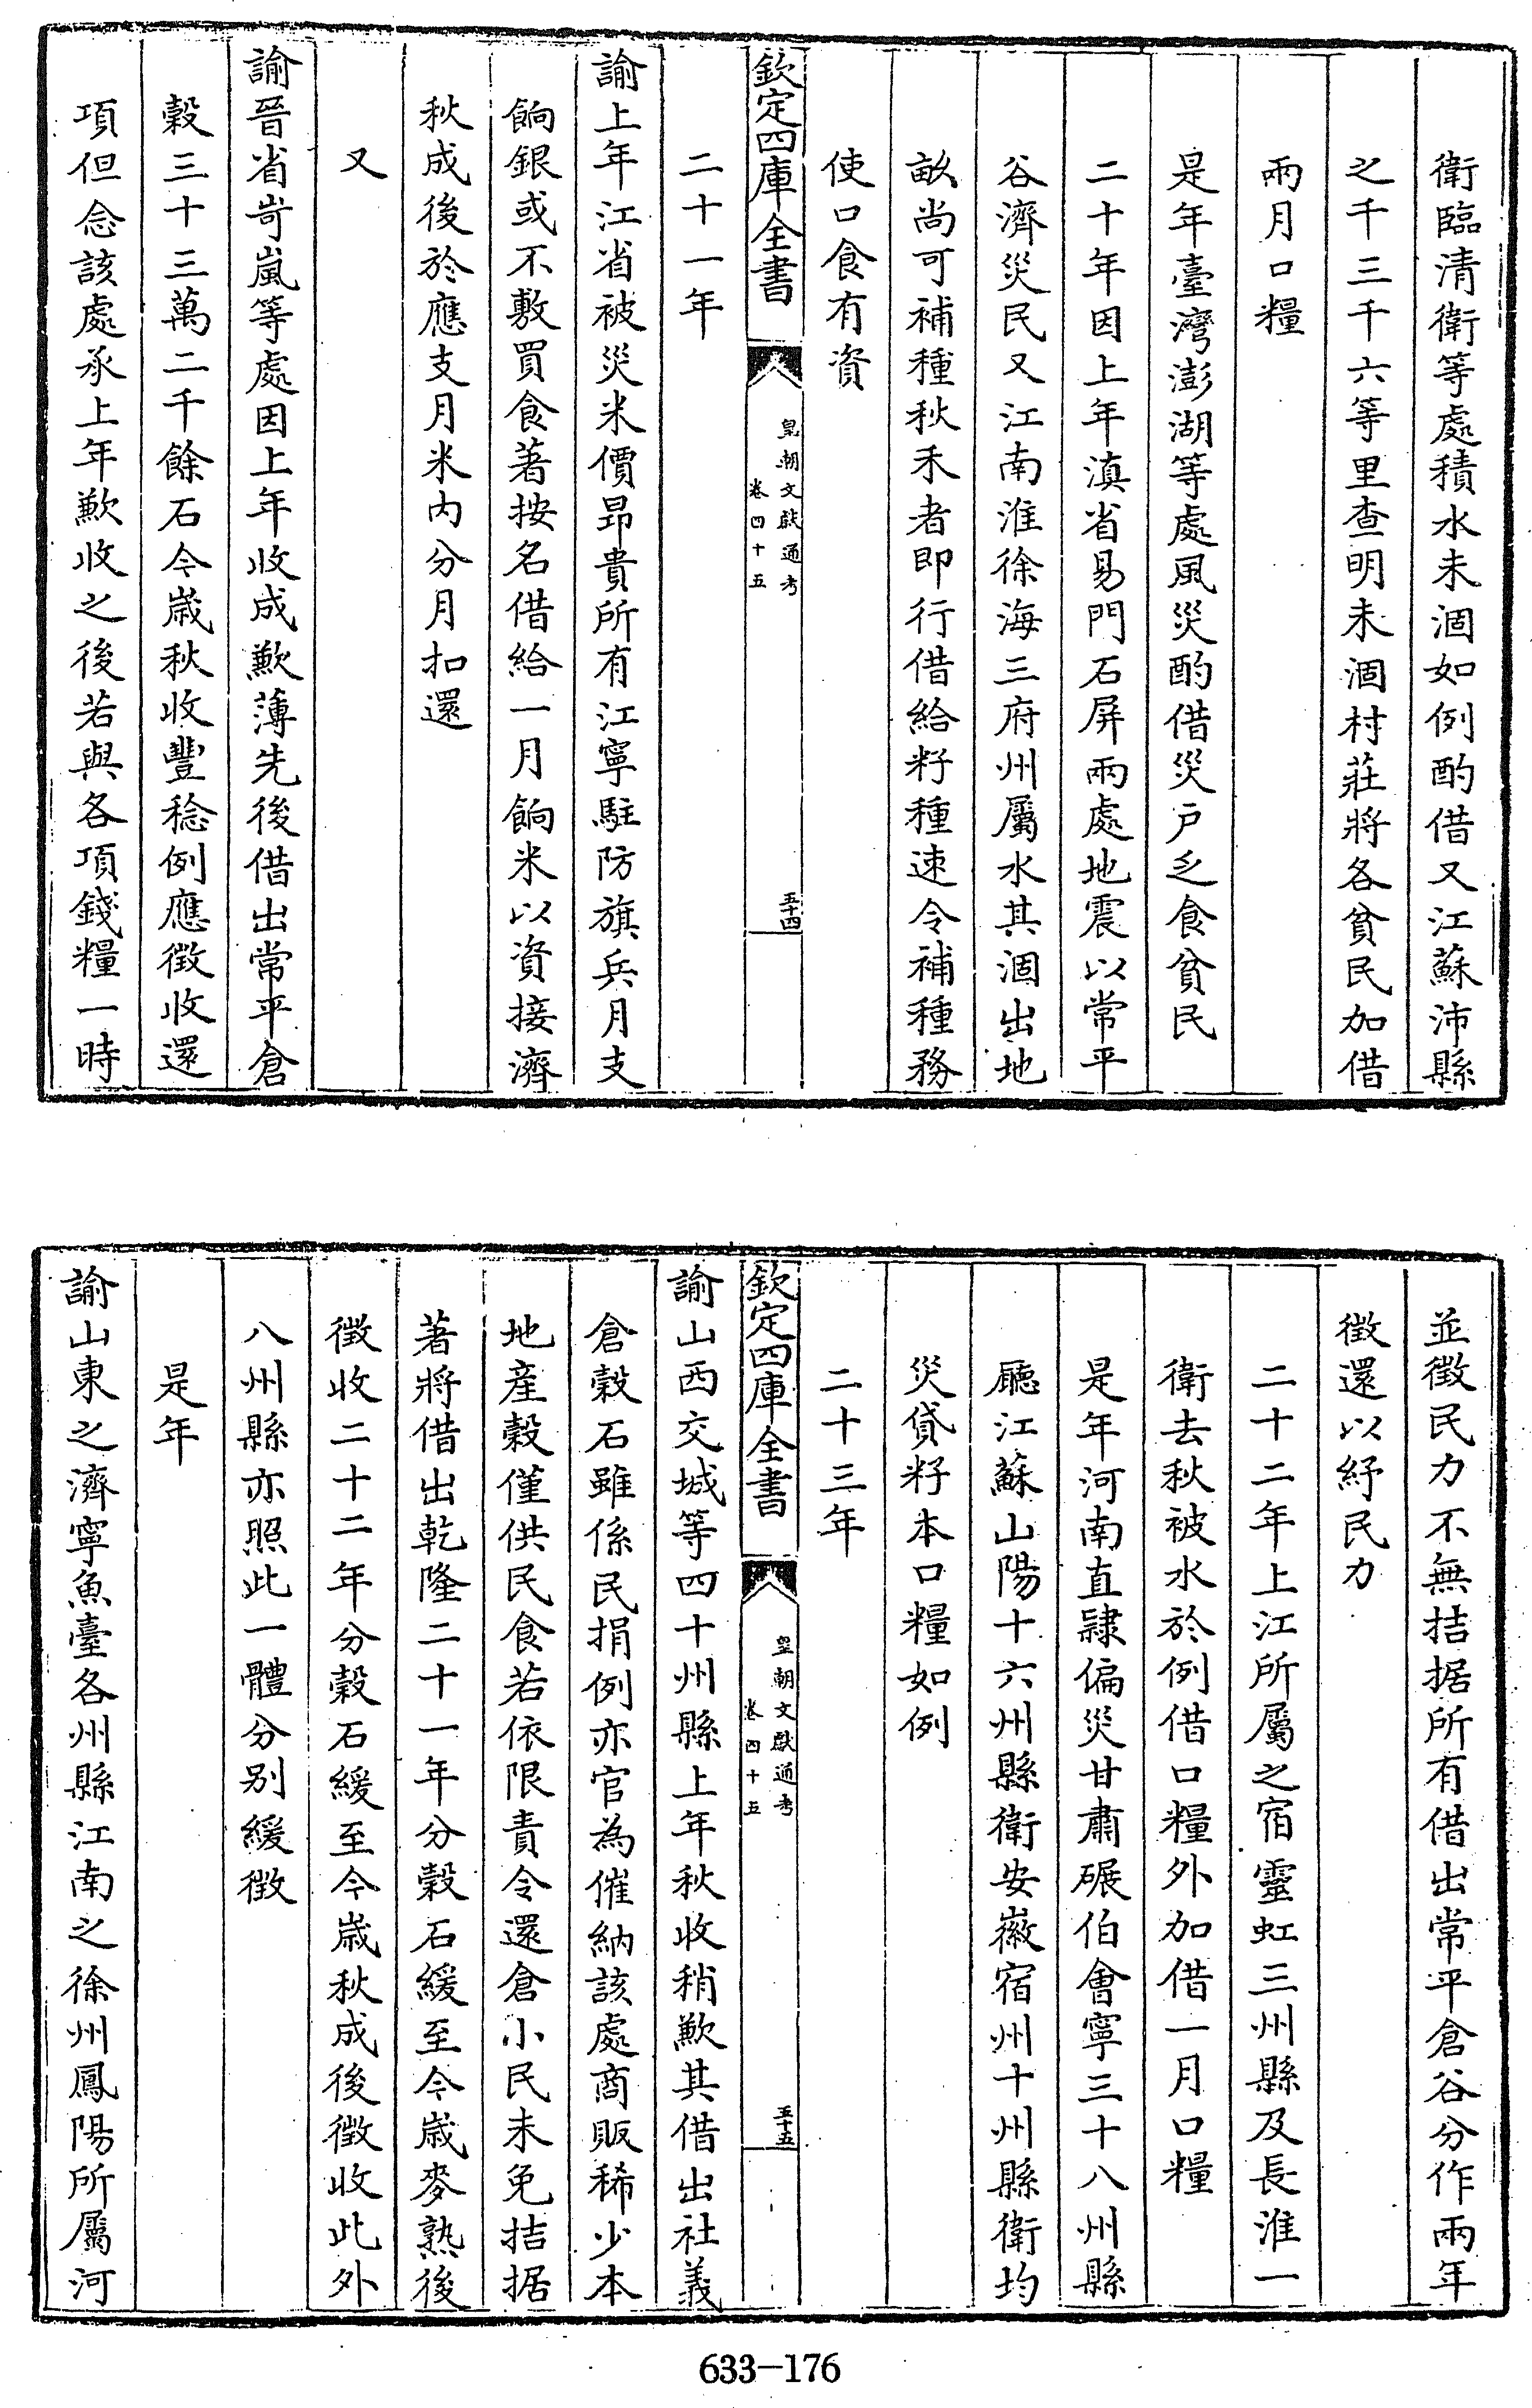 衛臨清衛等處積水未涸如例酌借又江蘇沛縣
之千三千六等里查明未涸村莊將各貧民加借
兩月口糧
是年臺灣澎湖等處風災酌借災戶乏食貧民
二十年因上年滇省易門石屏兩處地震以常平
谷濟災民又江南淮徐海三府州屬水其涸出地
畝尚可補種秋禾者即行借給籽種速令補種務
使口食有資
欽定四庫全書
皇朝文獻通考
卷四十五
五十四
二十一年
諭上年江省被災米價昻貴所有江寧駐防旗兵月支
餉銀或不敷買食著按名借給一月餉米以資接濟
秋成後於應支月米內分月扣還
又
諭晉省岢嵐等處因上年收成歉薄先後借出常平倉
穀三十三萬二千餘石今歲秋收豐稔例應徵收還
項但念該處承上年歉收之後若與各項錢糧一時
並徵民力不無拮据所有借出常平倉谷分作兩年
徵還以紓民力
二十二年上江所屬之宿靈虹三州縣及長淮一
衛去秋被水於例借口糧外加借一月口糧
是年河南直隸偏災甘肅碾伯會寧三十八州縣
廳江蘇山陽十六州縣衛安徽宿州十州縣衛均
災貸籽本口糧如例
二十三年
欽定四庫全書
皇朝文獻通考
卷四十五
五十五
諭山西交城等四十州縣上年秋收稍歉其借出社義
倉穀石雖係民捐例亦官為催納該處商販稀少本
地產穀僅供民食若依限責令還倉小民未免拮据
著將借出乾隆二十一年分穀石緩至今歲麥熟後
徵收二十二年分穀石緩至今歲秋成後徵收此外
八州縣亦照此一體分別緩徵
是年
諭山東之濟寧魚臺各州縣江南之徐州鳳陽所屬河
633-176